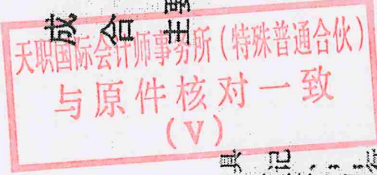 成 合 主要
天职国际会计师事务所(特殊普通合伙)
与原件核对一致
(V)